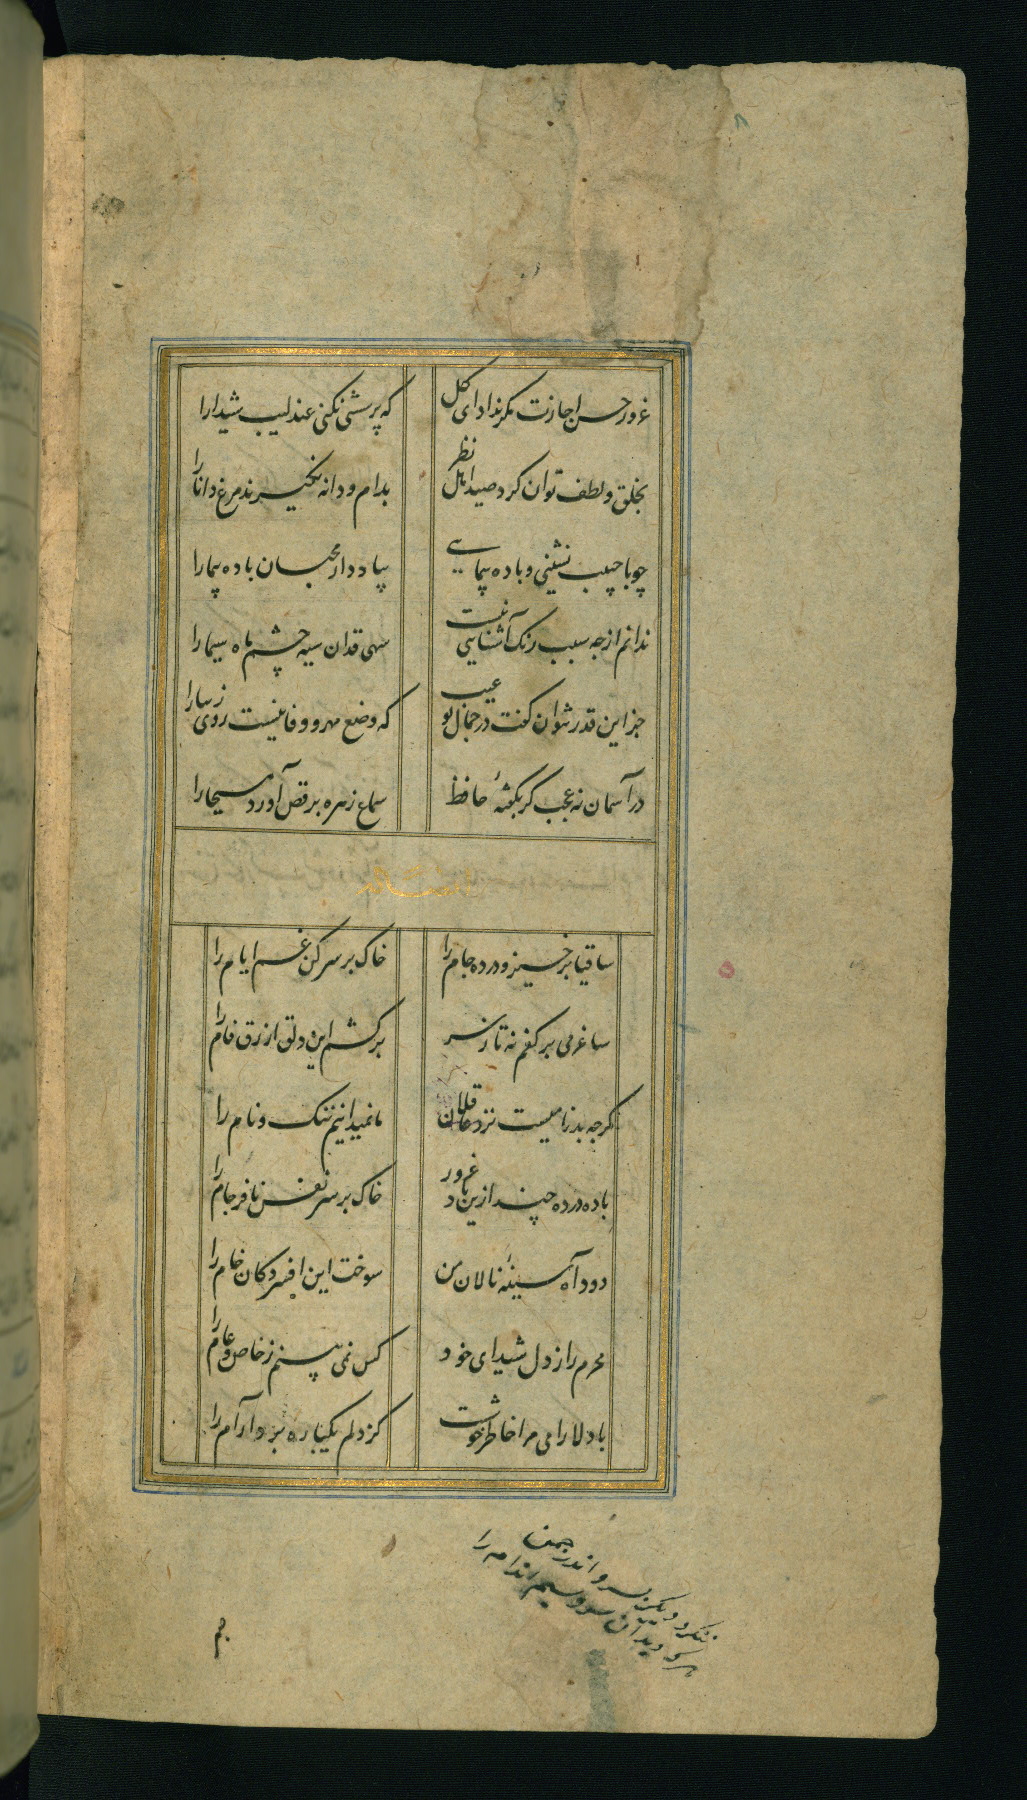 غرور حسن اجازت مکر نداد ای کل که پرسشی نکنی عندلیب شیدا را
بخلق و لطف توان کرد صید اهل نظر بدام و دانه نکیرند مرغ دانا را
چو با حبیب نشینی و باده پیمایی بیاد دار محبان باده پیما را
ندانم از چه سبب رنک آشنایی نیست سهی قدان سیه چشم ماه سیما را
جز این قدر نتوان کفت در جمال تو عیب که وضع مهر و وفا نیست روی زیبا را
در آسمان نه عجب کر بکفتهٔ حافظ سماع زهره برقص آورد مسیحا را
ساقیا برخیز و درده جام را خاک بر سر کن غم ایام را
ساغر می بر کفم نه تا ز سر برکشم این دلق ازرق فام را
کرچه بدنامیست نزد عاقلان ما نمیدانیم ننک و نام را
باده درده چند ازین باد غرور خاک بر سر نفس نافرجام را
دود آه سینهٔ نالان من سوخت این افسردکان خام را
محرم راز دل شیدای خود کس نمی بینم ز خاص و عام را
با دلارامی مرا خاطر خوشست کز دلم یکباره برد آرام را
ننکرد دیکر بسرو اندر چمن
هرکه دید آن سرو سیم اندام را